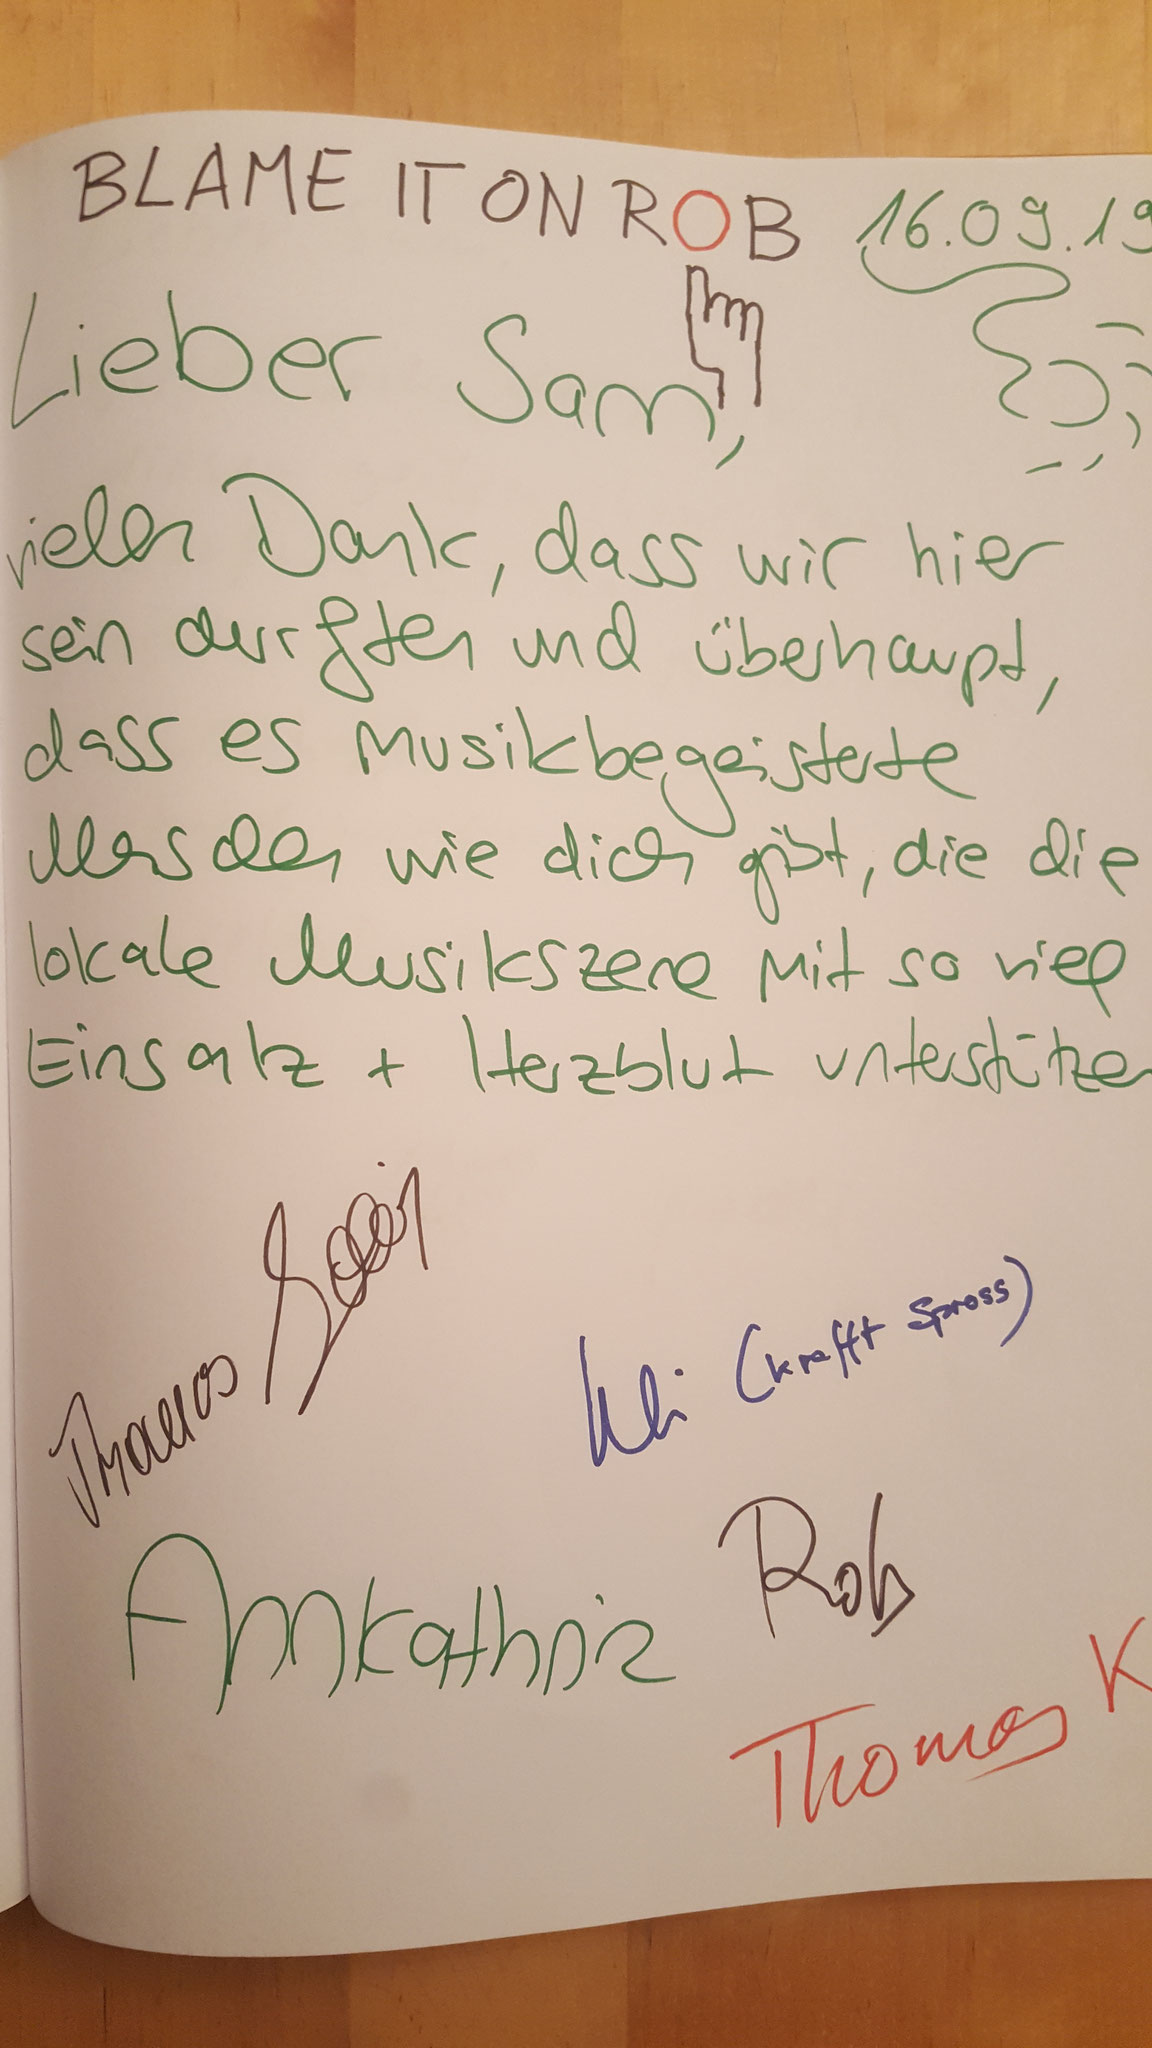 BLAME IT ON ROB 16.09.19
Lieber Sam,
vielen Dank, dass wir hier
sein durften und überhaupt,
dass es musikbegeisterte
Menschen wie dich gibt, die die
lokale Musikszene mit so viel
Einsatz + Herzblut unterstützen
Thomas
(krafft spross)
Rob
Annkathrin
Thomas K